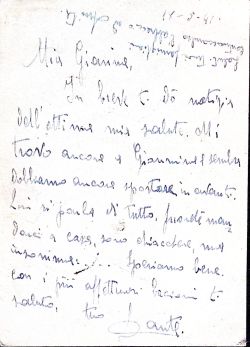 Mia Gianna,
In breve ti dò notizie
dell'ottima mia salute. Mi
trovo ancora a Giannina e sembra
dobbiamo ancora spostare in avanti.
Qui si parla di tutto,
a casa, sono chiacchere, ma
insomma..... Speriamo bene.
con i più affettuosi bacioni ti
saluto, tuo Sante.